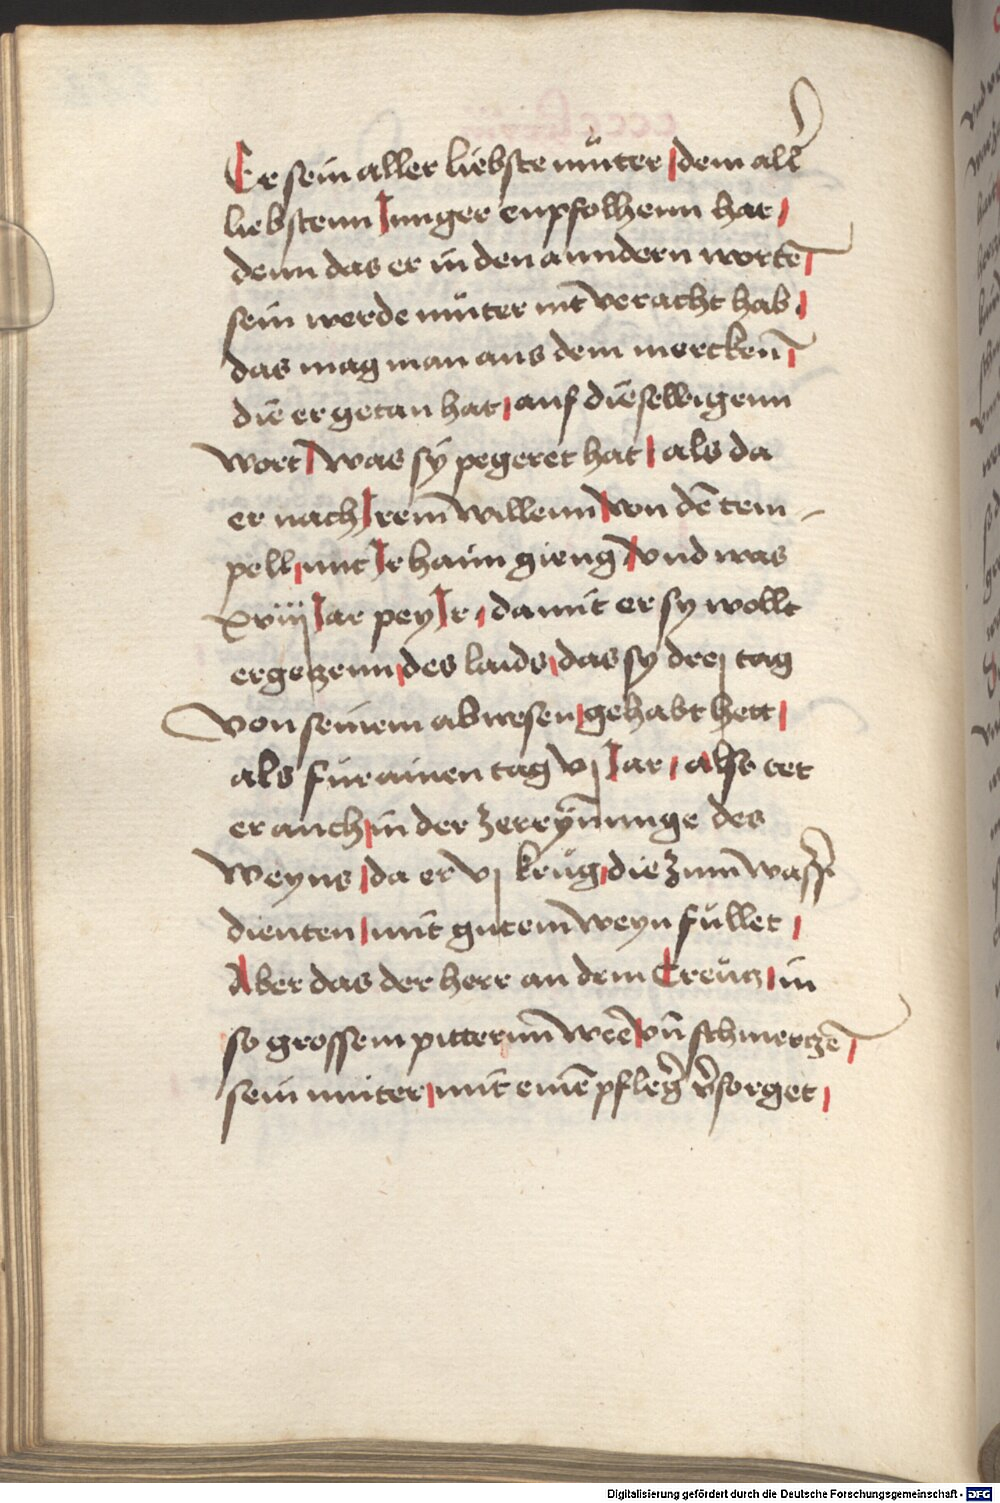 Er sein aller liebste mŭter / dem all̄
liebstenn Junger enpfolhenn hat /
denn das er in den anndern wortē /
sein werde mŭter nit veracht hab /
das mag man aus dem merckenn̄ /
die er getan hat / auf dieselbigenn
wort / was sÿ pegeret hat / als da
er nach Irem̄ willenn / von dē tem-
pell / mit Ir haim gieng / vnd was
xviij Jar pey Ir / damit er sy wollt
ergetzenn / des laids / das sy drej tag
von seinem abwesen / gehabt hett /
als für ainen tag vj Jar / also tet
er auch / in der zerrÿn̄unge des
weyns / da er vj krŭg / die zum̄ wass̄
dienten / mit gutem̄ weyn füllet /
Aber das der herr an dem Creŭtz / in
so grossem pitterm̄ wee / vn̄ schmertzē /
sein muter / mit einē pfleḡ v̄sorget /
Digitalisierung gefördert durch die Deutsche Forschungsgemeinschaft - DFG